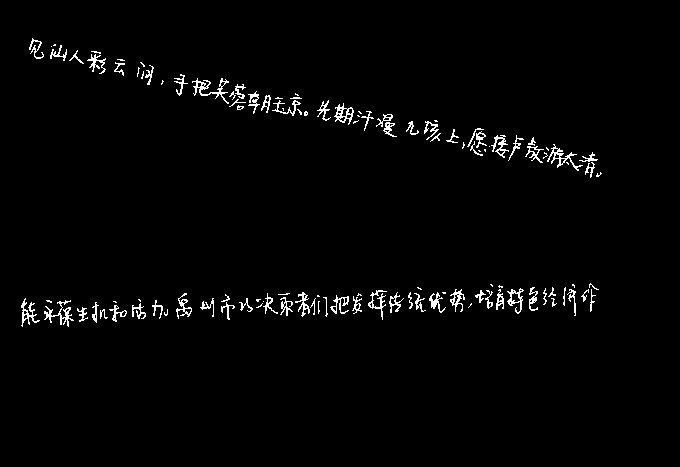 见仙人彩云间,手把芙蓉朝玉京。先期汗漫九垓上,愿接卢敖游太清。
能永葆生机和活力。禹州市的决策者们把发挥传统优势,培育特色经济作